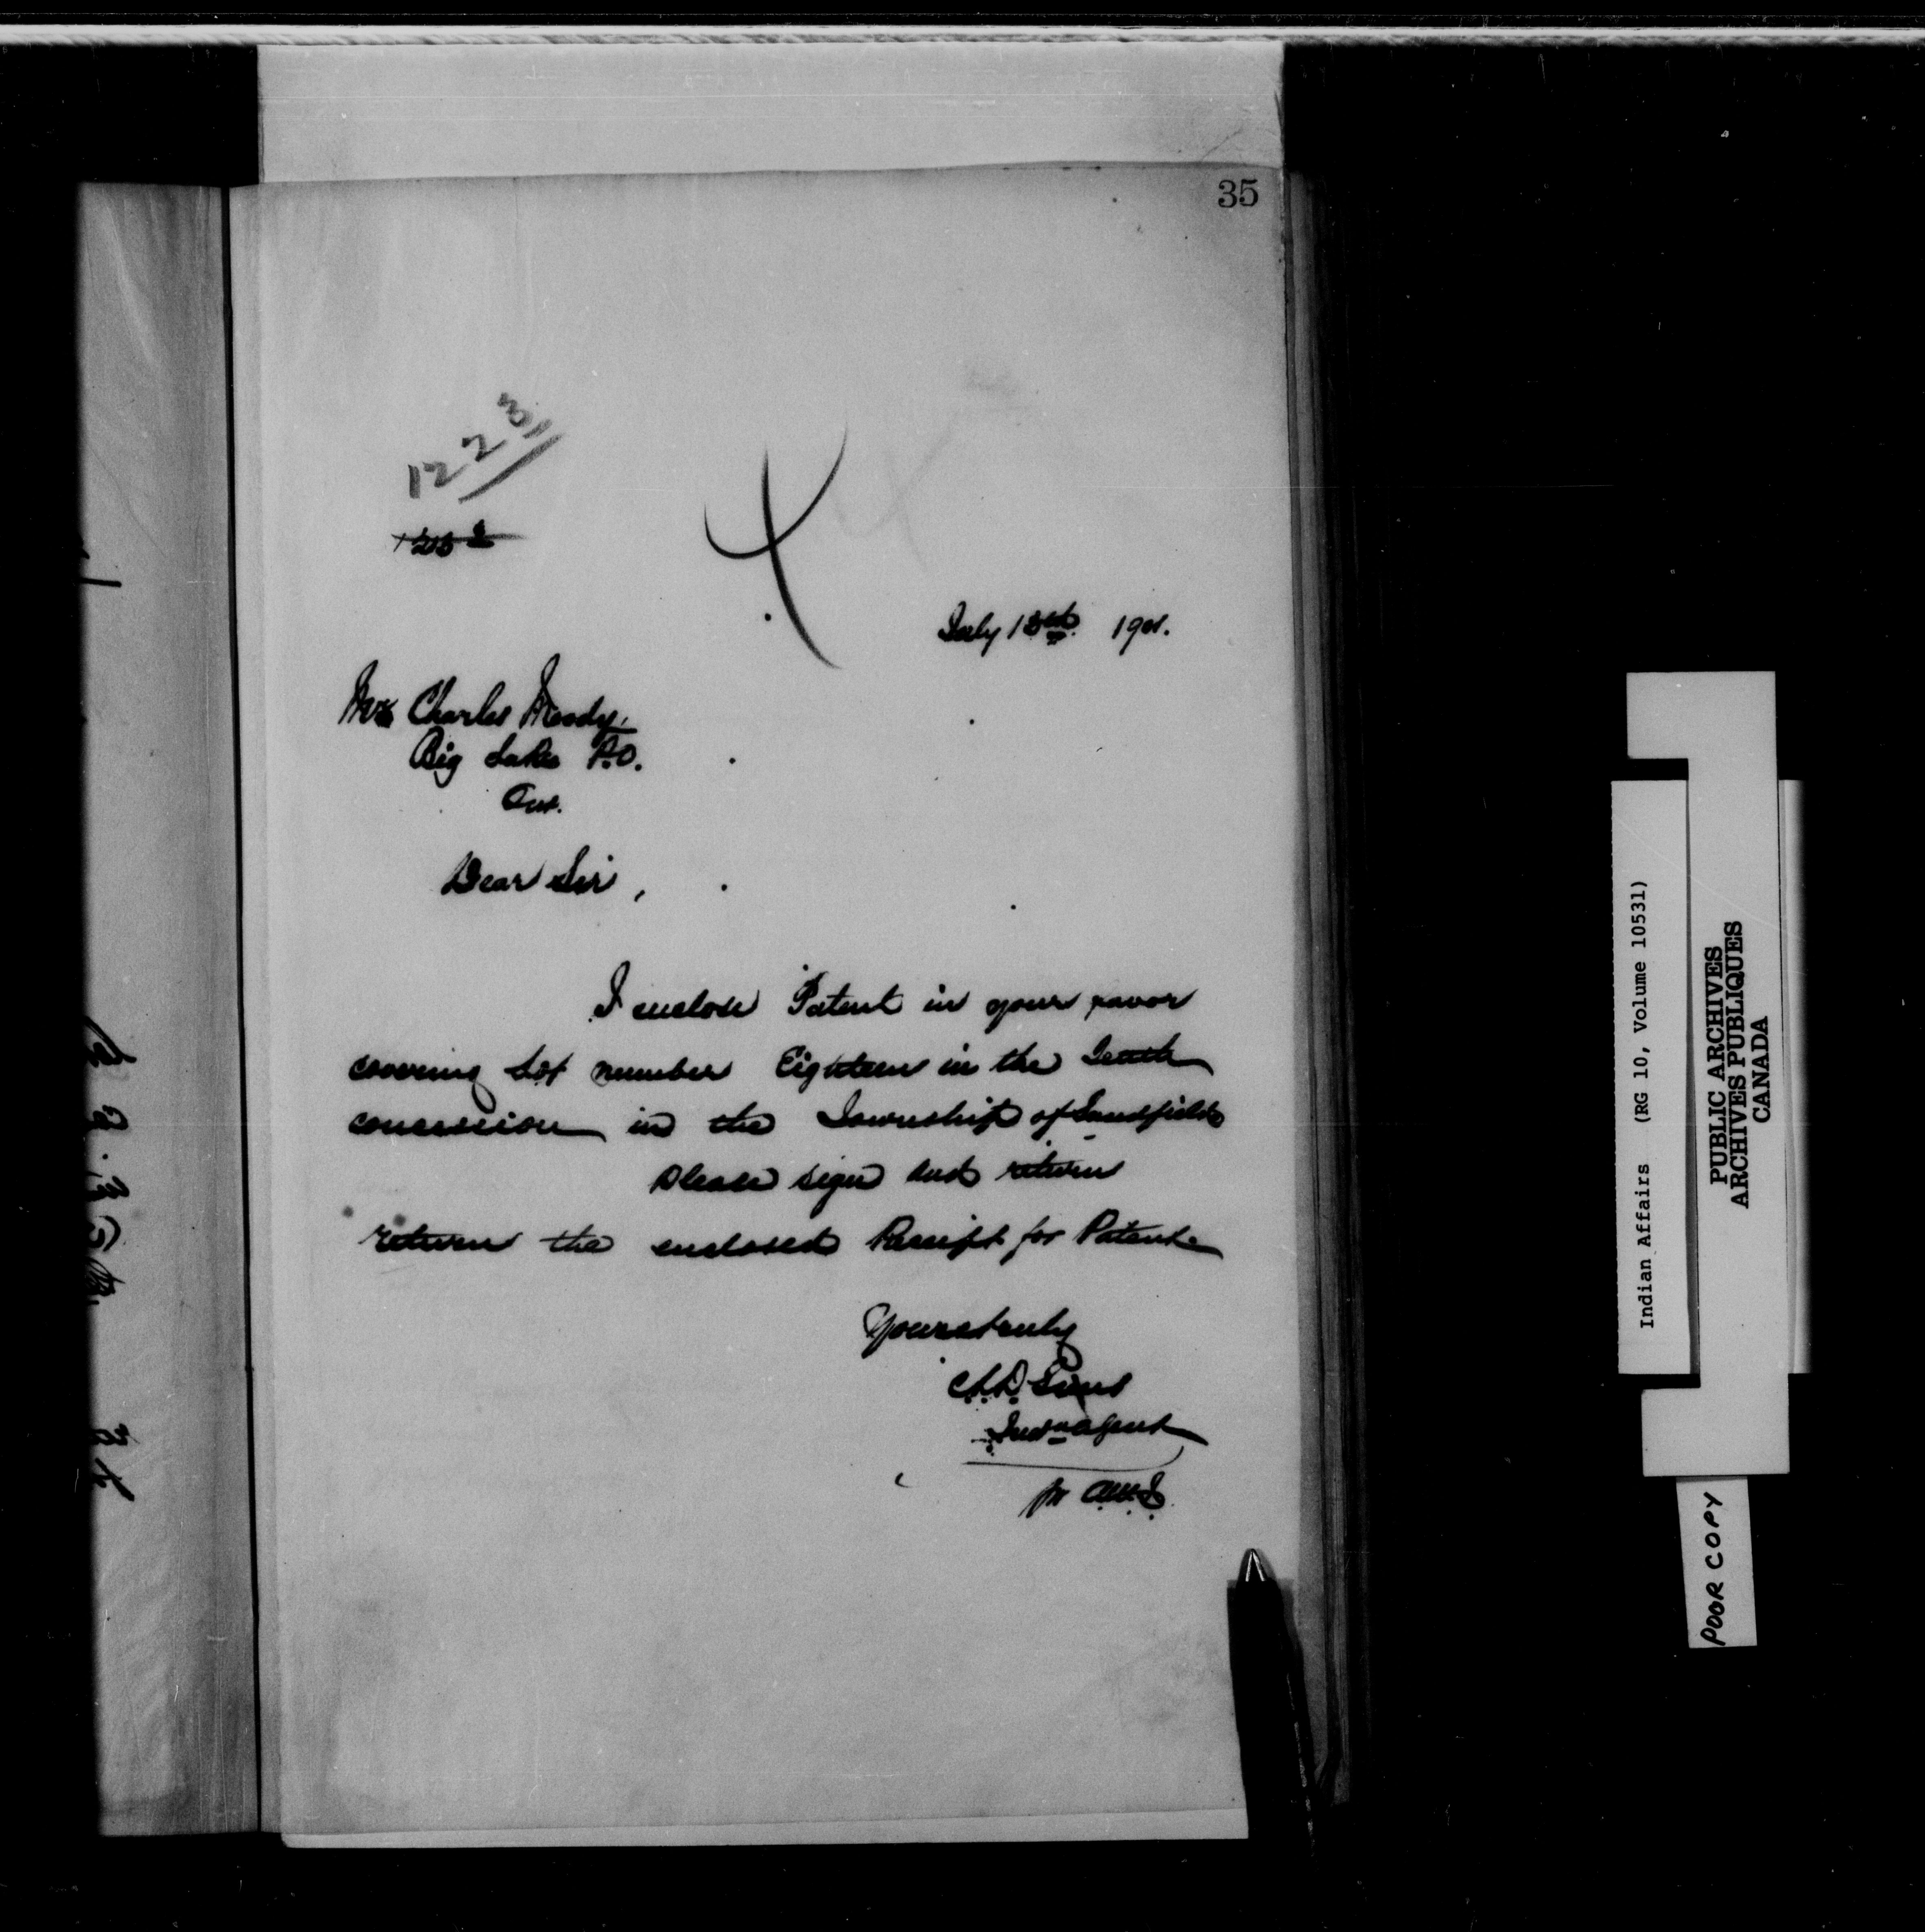 35
1223
July 13th 1901.
Mr Charles Moody,
Big Lake P.O.
Ont.
Dear Sir,
I enclose Patent in your favor
covering Lot number Eighteen in the Tenth
concession in the Township of Sandfield
Please sign and return
return the enclosed Receipt for Patent
Yours truly
C.L.D. Sims
Indn agent
pr A.W.S.
Indian Affairs (RG 10, Volume 10531)
PUBLIC ARCHIVES
ARCHIVES PUBLIQUES
CANADA
POOR COPY